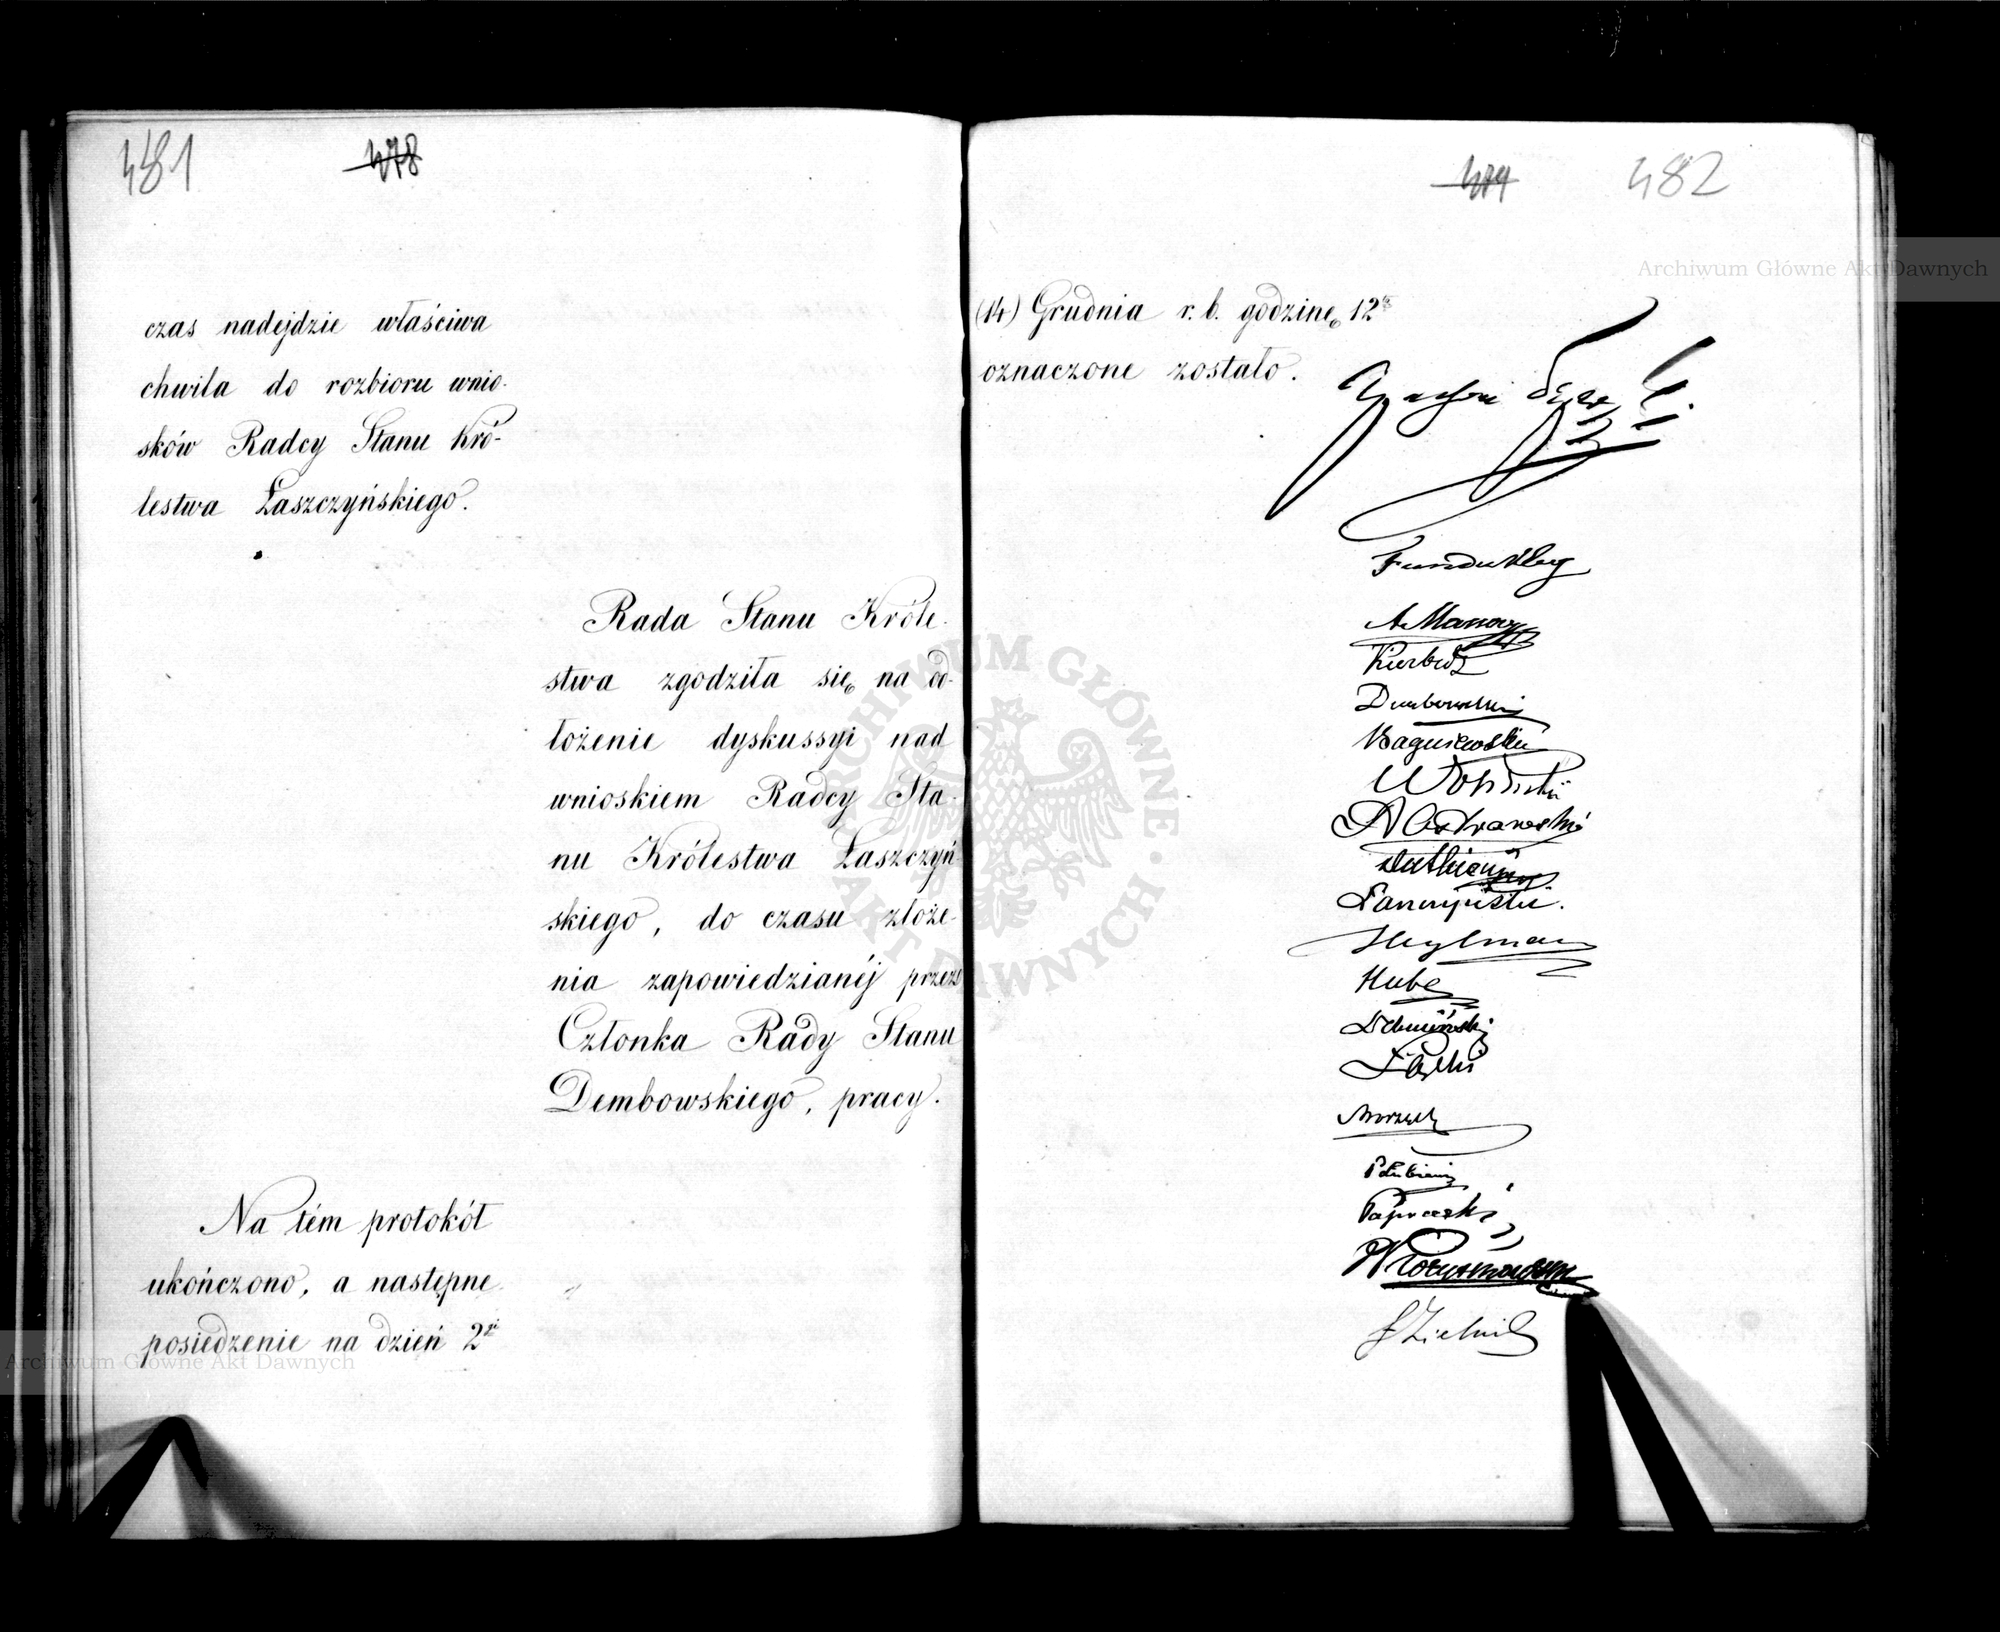 481
478
czas nadejdzie właściwa
chwila do rozbioru wnio-
sków Radcy Stanu Kró-
lestwa Łaszczyńskiego.
Rada Stanu Króle-
stwa zgodziła się na od-
łożenie dyskussyi nad
wnioskiem Radcy Sta-
nu Królestwa Łaszczyń-
skiego, do czasu złoże-
nia zapowiedzianéj przez
Członka Rady Stanu
Dembowskiego, pracy.
Na tém protokół
ukończono, a następne
posiedzenie na dzień 2gi
482
Archiwum Główne Akt Dawnych
(14) Grudnia r. b. godzinę 12tą
oznaczone zostało.
Fundukley
Dembowski
A Ostrowski
Heylman
Hube
Paprocki
Archiwum Główne Akt Dawnych
ARCHIWUM GŁÓWNE AKT DAWNYCH